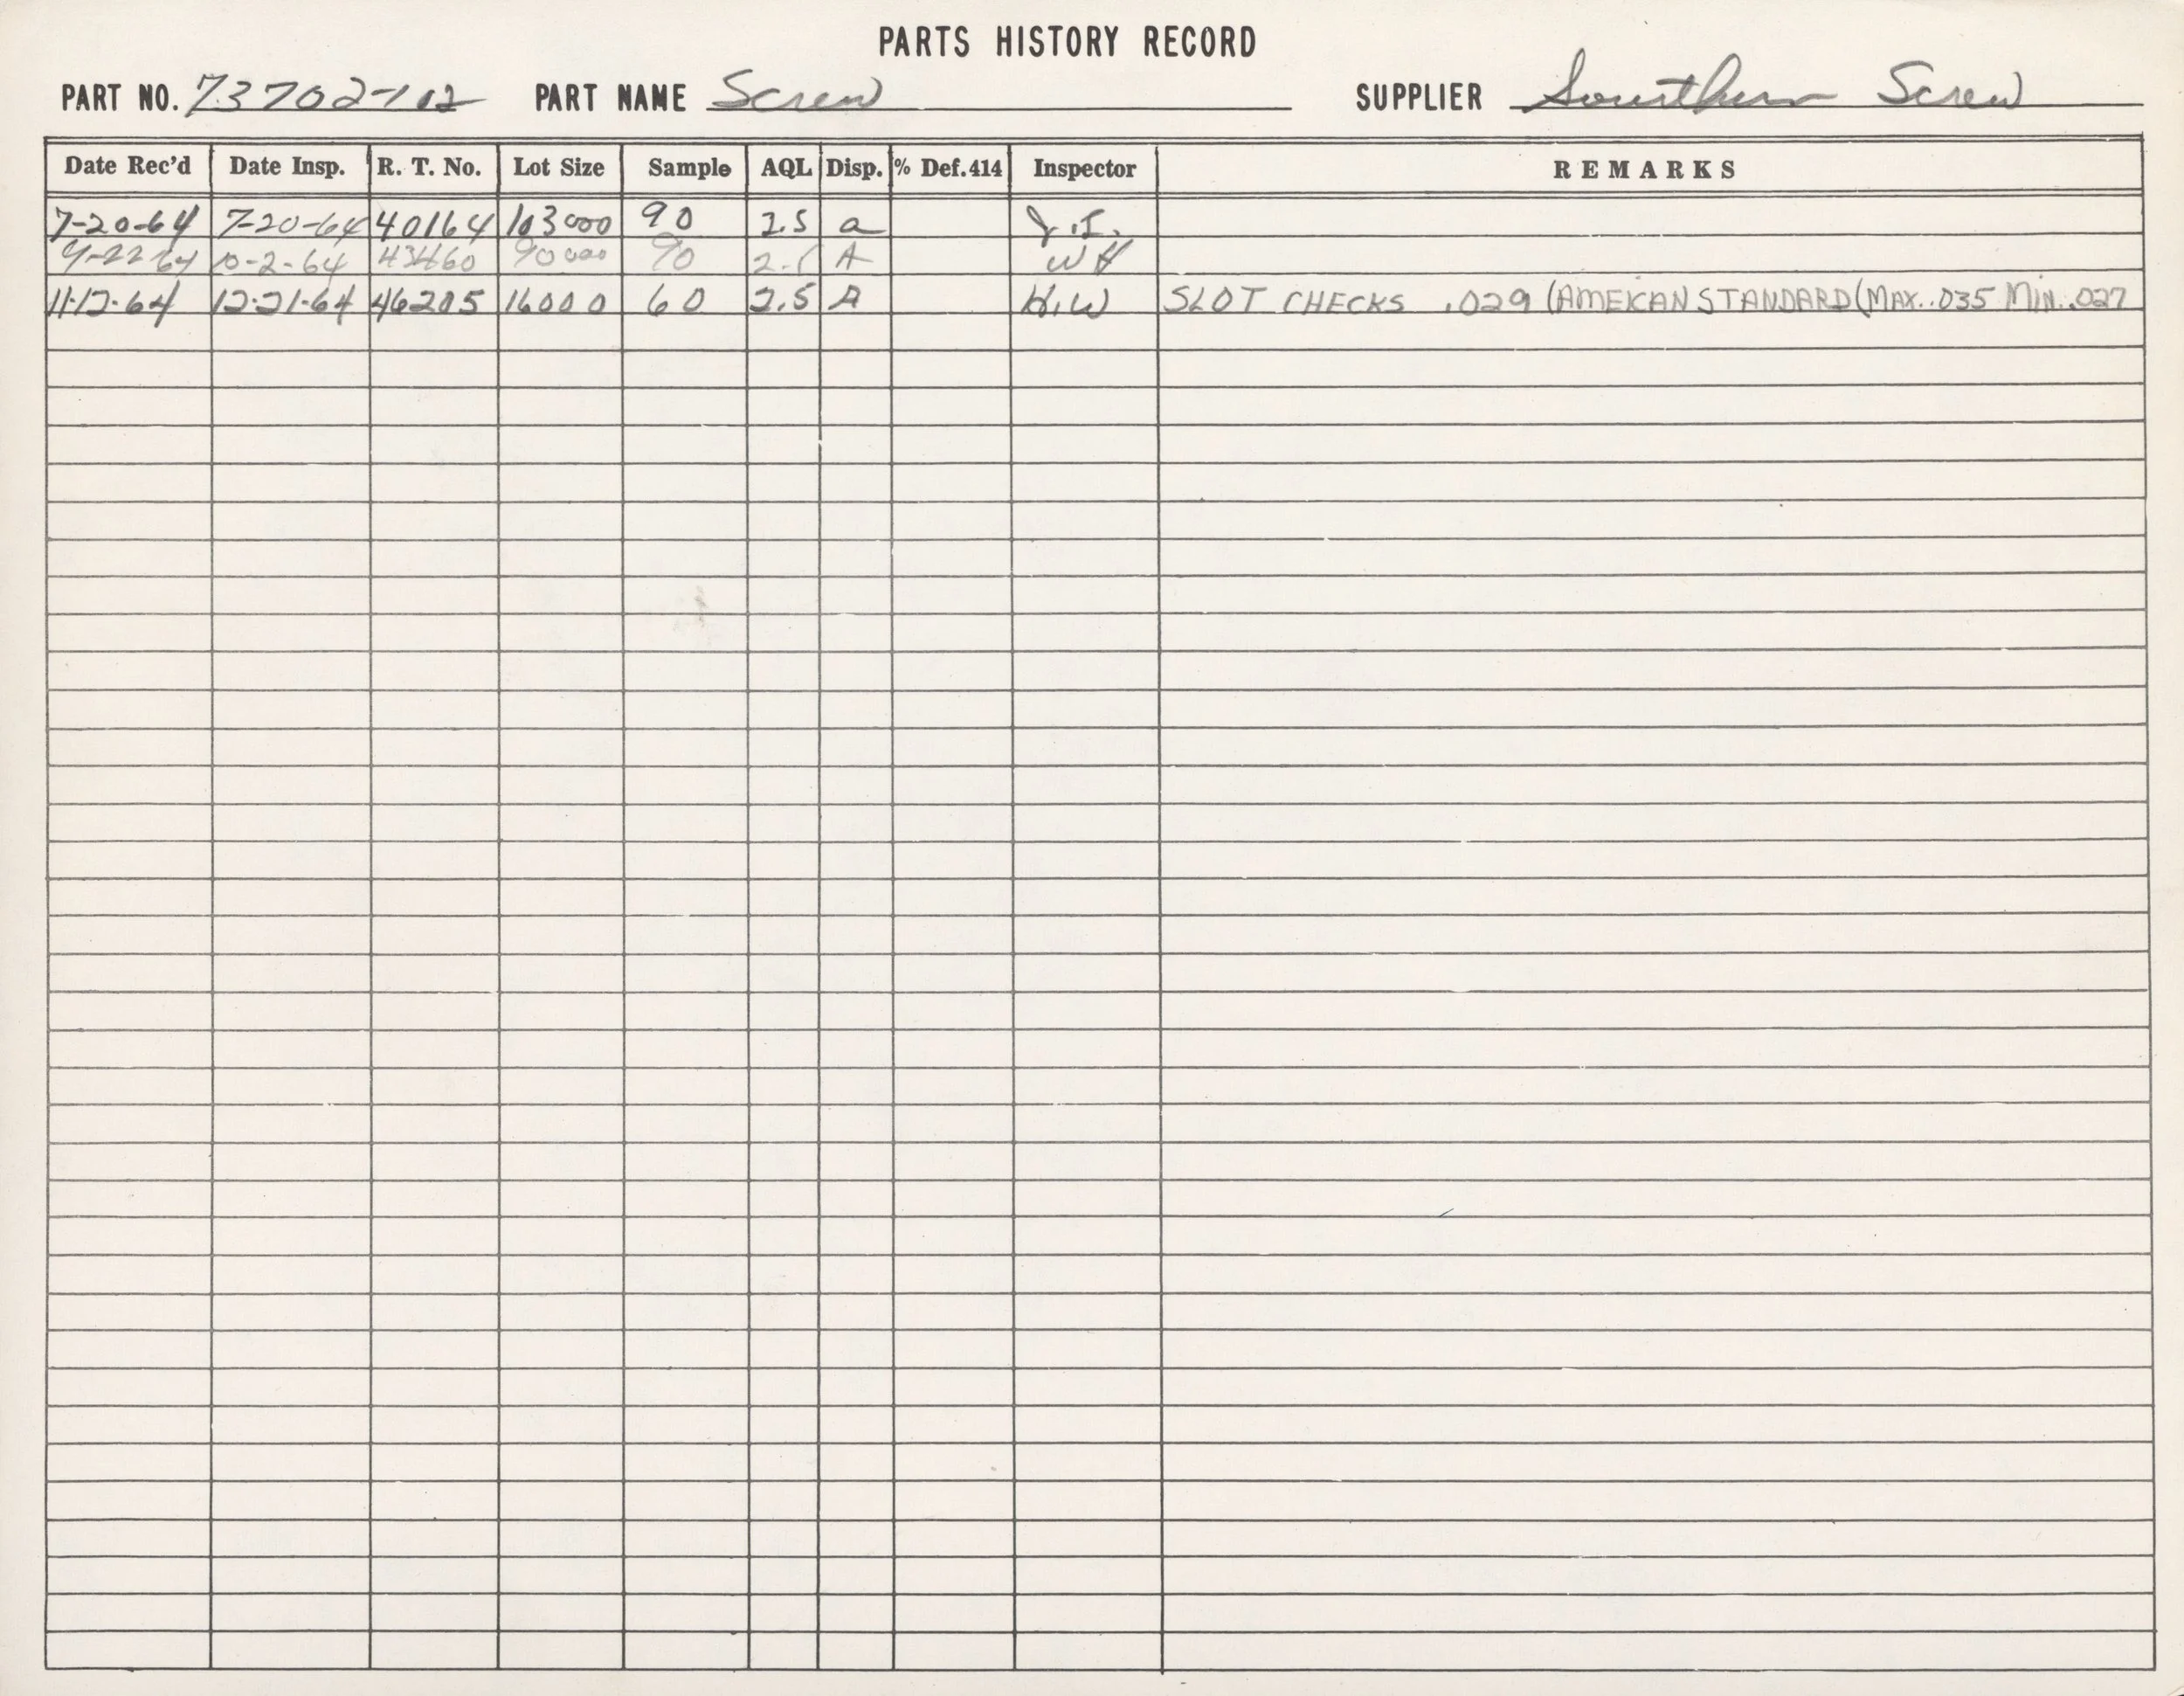 PARTS HISTORY RECORD
PART NO. 73702-112 PART NAME Screw SUPPLIER Sourthern Screw
Date Rec'd Date Insp. R. T. No. Lot Size Sample AQL Disp. % Def.414 Inspector REMARKS
7-20-64 7-20-64 40164 103000 90 2.5 a J.I.
9-22-64 10-2-64 43460 90000 90 2.5 A WH
11-12-64 12-21-64 46205 16000 60 2.5 A H.W SLOT CHECKS .029 (AMERCAN STANDARD (MAX. .035 MIN. .027